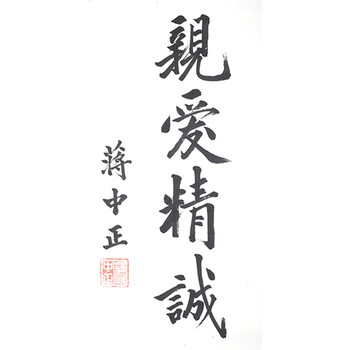 親爱精誠
蔣中正